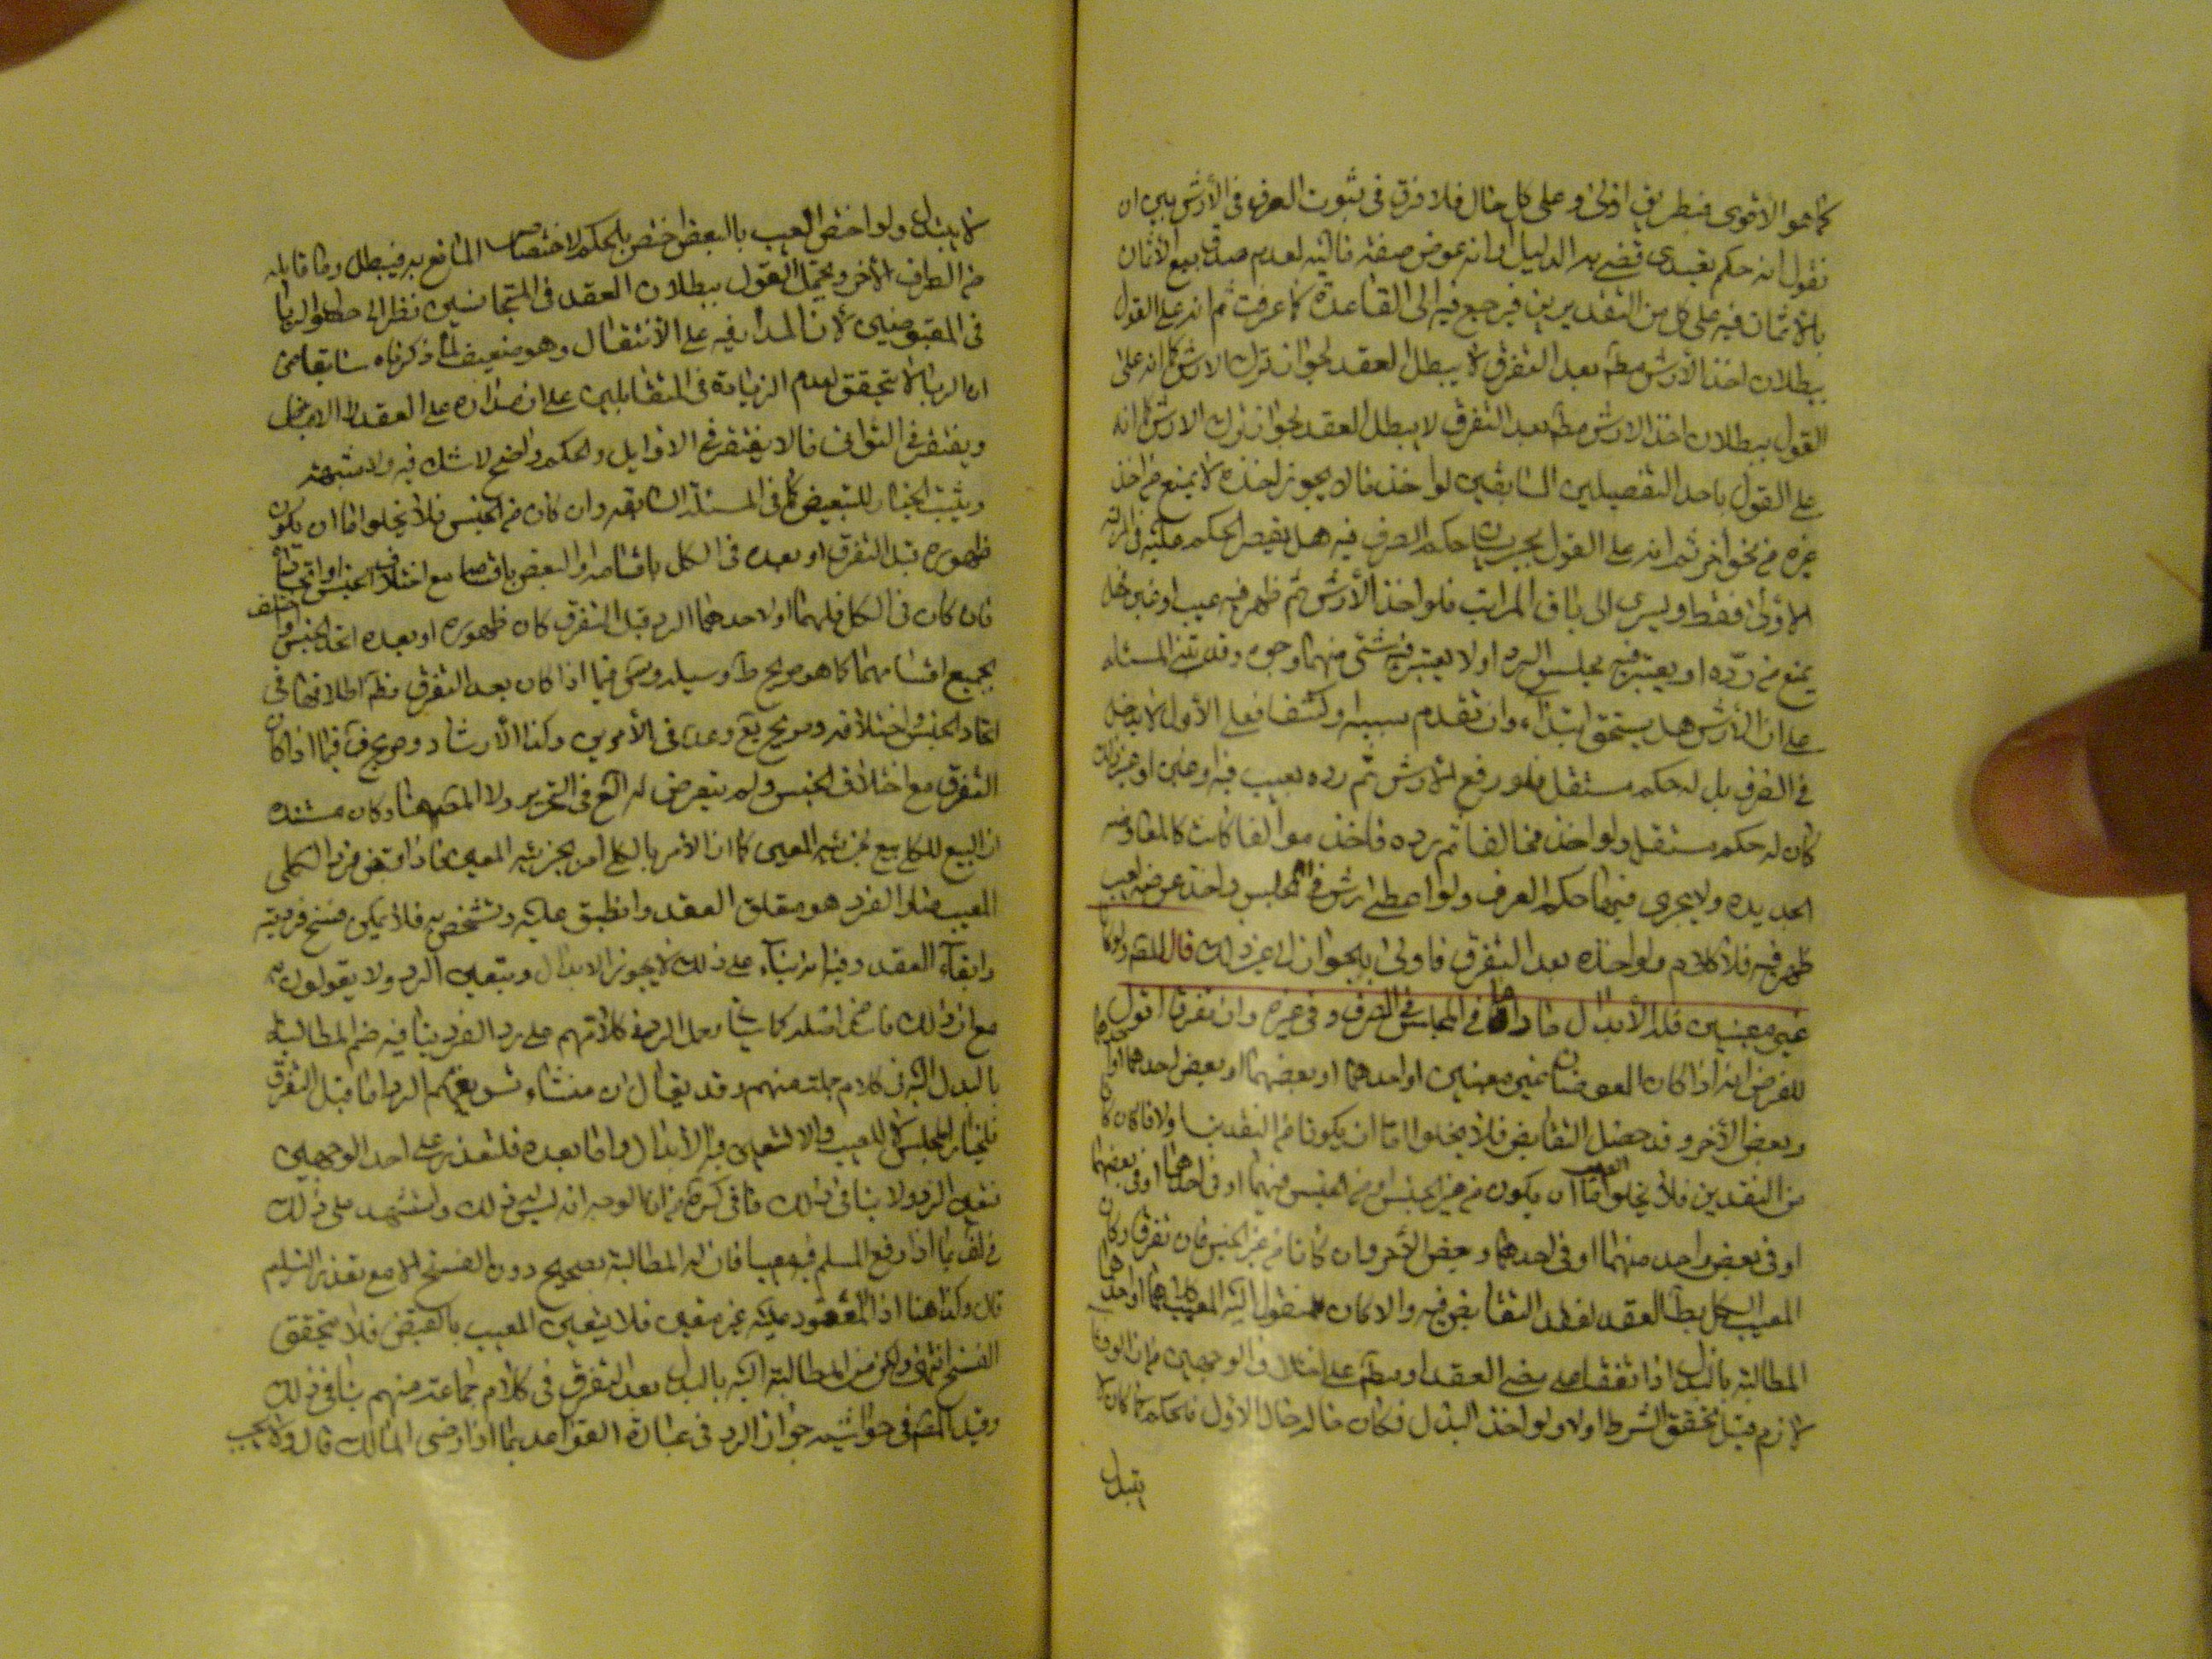 كما هو الأقوى فبطريق اولى وعلى كل حال فلا فرق في ثبوت الصرف في الأرش بين ان
نقول انه حكم تعبدي قضى به الدليل او انه عوض صفة مالية لعدم صدق بيع الاثمان
بالاثمان فيه على كل من التقديرين فيرجع فيه الى القاعدة كما عرفت ثم انه على القول
ببطلان اخذ الأرش مطـ بعد التفرق لا يبطل العقد لجواز ترك الارش كما انه على
القول ببطلان اخذ الارش مطـ بعد التفرق لا يبطل العقد لجواز ترك الارش كما انه
على القول باحد التفصيلين السابقين لو اخذ ما لا يجوز اخذه لا يمنع من اخذ
غيره من نحو اخر ثم انه على القول بجريان حكم الصرف فيه هل يقصر الحكم عليه في المرتبة
الأولى فقط او يسري الى باقي المراتب فلو اخذ الأرش ثم ظهر فيه عيب او غبن فهل
يمنع من رده او يعتبر فيه مجلس الرد او لا يعتبر فيه شئ منهما وجوه وقد تبنى المسئلة
على ان الأرش هل يستحق ابتداء وان تقدم سببه او كشفا فعلى الأول لا يدخل
في الصرف بل له حكم مستقل فلو رفع الارش ثم رده بعيب فيه او غبن او غير ذلك
كان له حكم مستقل ولو اخذ مخالفا ثم رده فاخذ موالفا كانت كالمعاوضة
الجديدة ولا يجري فيهما حكم الصرف ولو اعطى ارش في المجلس واخذ عوضه لعيب
ظهر فيه فلا كلام ولو اخذه بعد التفرق فاولى بالجواز الى غير ذلك قال المصـ ولو كانا
غير معينين فله الأبدال ما داما في المجلس في الصرف وفي غيره وان تفرقا اقول
للفرض انه اذا كان العوضان غير معينين او احدهما او بعضهما او بعض احدهما او احدهما
وبعض الآخر وقد حصل التقابض فلا يخلو اما ان يكونا من النقدين او لا فان كانا
من النقدين فلا يخلو اما ان يكون العيب من غير الجنس او من الجنس فيهما او في احدهما او في بعضهما
او في بعض واحد منهما او في احدهما وبعض الآخر وان كانا من غير الجنس فان تفرقا وكان
المعيب الكل بطل العقد لفقد التقابض فيه والا كان للمنقول اليه المعيب كلاهما او احدهما
المطالبة بالبدل اذا تفقا على مضي العقد او مطـ على اختلاف الوجهين فان الوفا
لازم قبل تحقق الشرط او لا ولو اخذ البدل فكان حاله حال الاول فالحكم كما كان لا
يتبدل
لا يبتدل ولو اختص العيب بالبعض اختص بالحكم لاختصاص المانع به فيبطل وما قابله
من الطرف الأخر ويحتمل القول ببطلان العقد في المتجانسين نظرا الى حصول الربا
في المقبوضين لأن المدار فيه على الأنتقال وهو ضعيف لما ذكرناه سابقا من
ان الربا لا يتحقق لعدم الزيادة في المتقابلين على ان مداره على العقد لا الابدال
ويغتفر في الثواني ما لا يغتفر في الاوايل والحكم واضح لا شك فيه ولا شبهة
ويثبت الخيار للتبعيض كما في المسئلة السابقة وان كان من الجنس فلا يخلو اما ان يكون
ظهوره قبل التفرق او بعده في الكل باقسامه او البعض باقسامه مع اختلاف الجنس او اتحاده
فان كان في الكل فلهما او لاحدهما الرد قبل التفرق كان ظهوره او بعده اتحد الجنس او اختلف
بجميع اقسامهما كما هو صريح ط وسيلة وس فيما اذا كان بعد التفرق وظـ اطلاقها في
اتحاد الجنس واختلافه وصريح يع وعد في الأمرين وكذا الأرشاد وصريح ف فيما اذا كان
التفرق مع اختلاف الجنس ولم يتعرض له الع في التحرير ولا المصـ هنا وكان مستنده
ان البيع للكلي بيع لجزئيه المعين كما ان الأمر بالكلي امر بجزئيه المعين فاذا قبض فرد الكلي
المعيب مثلا والفرد هو متعلق العقد وانطبق عليه وتشخص به فلا يمكن فسخ فرديته
وابقاء العقد وفيه انه بناء على ذلك لا يجوز الابدال ويتعين الرد ولا يقولون به
مع ان ذلك فاسد من اصله كما سيأتي ولعل الرد في كلامهم على رد الفرد ينافيه ضم المطالبة
بالبدل اليه في كلام جملة منهم وقد يقال ان منشاء تسويغهم الرد اما قبل التفرق
فلخيار المجلس لا للعيب والا لتعين فيه الأبدال واما بعده فلتعذره على احد الوجهين
فتعين الرد ولا ينافي ذلك ما في كره من ان الوجه انه ليس له ذلك واستشهد على ذلك
في لف بما اذا رفع المسلم فيه معيبا فان له المطالبة بصحيح دون الفسخ الا مع تعذر التسليم
قال وكذا هنا اذ المعقود عليه غير معين فلا يتعين المعيب بالقبض فلا يتحقق
الفسخ انتهى ولكن ضم المطالبة اليه بالبدل بعد التفرق في كلام جماعة منهم ينافي ذلك
وقيد المصـ في حواشيه جواز الرد في عبارة القواعد بما اذا رضى المالك قال ولا يجب